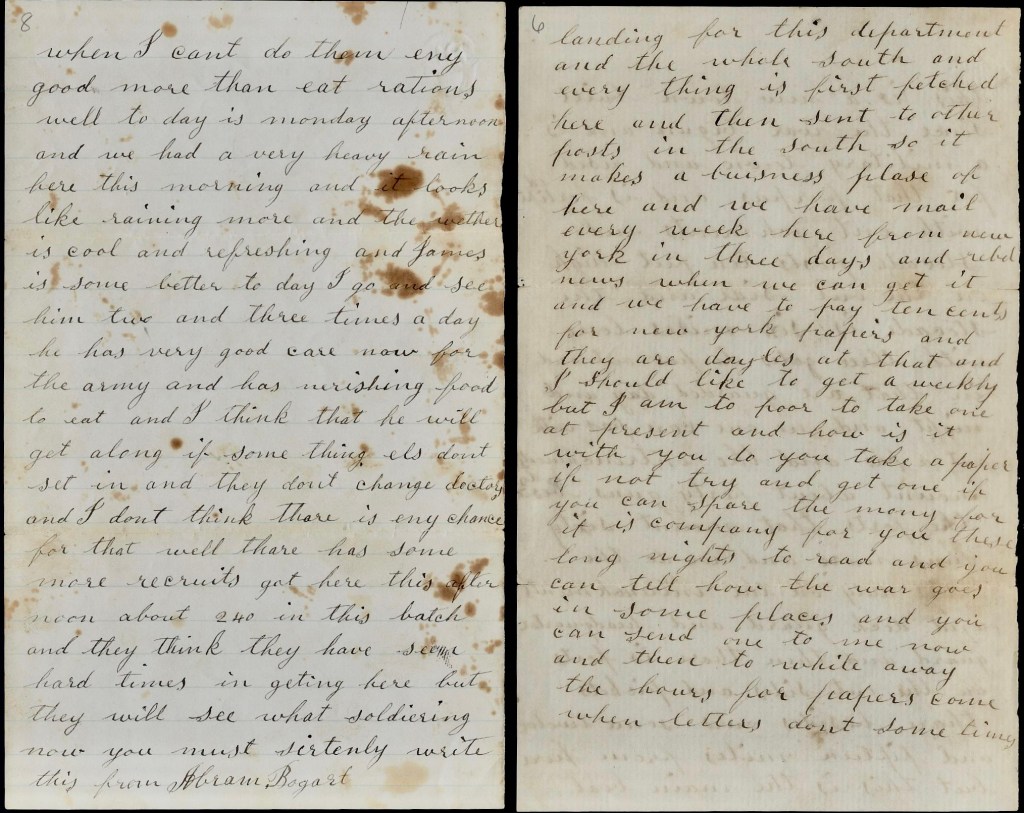 8
when I cant do them eny
good more than eat rations
well to day is monday afternoon
and we had a very heavy rain
here this morning and it looks
like raining more and the wether
is cool and refreshing and James
is some better to day I go and see
him two and three times a day
he has very good care now for
the army and has nerishing food
to eat and I think that he will
get along if some thing els dont
set in and they dont change doctors
and I dont think thare is eny chance
for that well thare has some
more recruits got here this after
noon about 240 in this batch
and they think they have seen
hard times in geting here but
they will see what soldiering
now you must sirtenly write
this from Abram Bogart
6
landing for this department
and the whole south and
every thing is first fetched
here and then sent to other
posts in the south so it
makes a buisness plase of
here and we have mail
every week here from new
york in three days and rebel
news when we can get it
and we have to pay ten cents
for new york papers and
they are dayles at that and
I should like to get a weekly
but I am to poor to take one
at present and how is it
with you do you take a paper
if not try and get one if
you can spare the mony for
it is company for you these
long nights to read and you
can tell how the war goes
in some places and you
can send one to me now
and then to while away
the hours for papers come
when letters dont some times